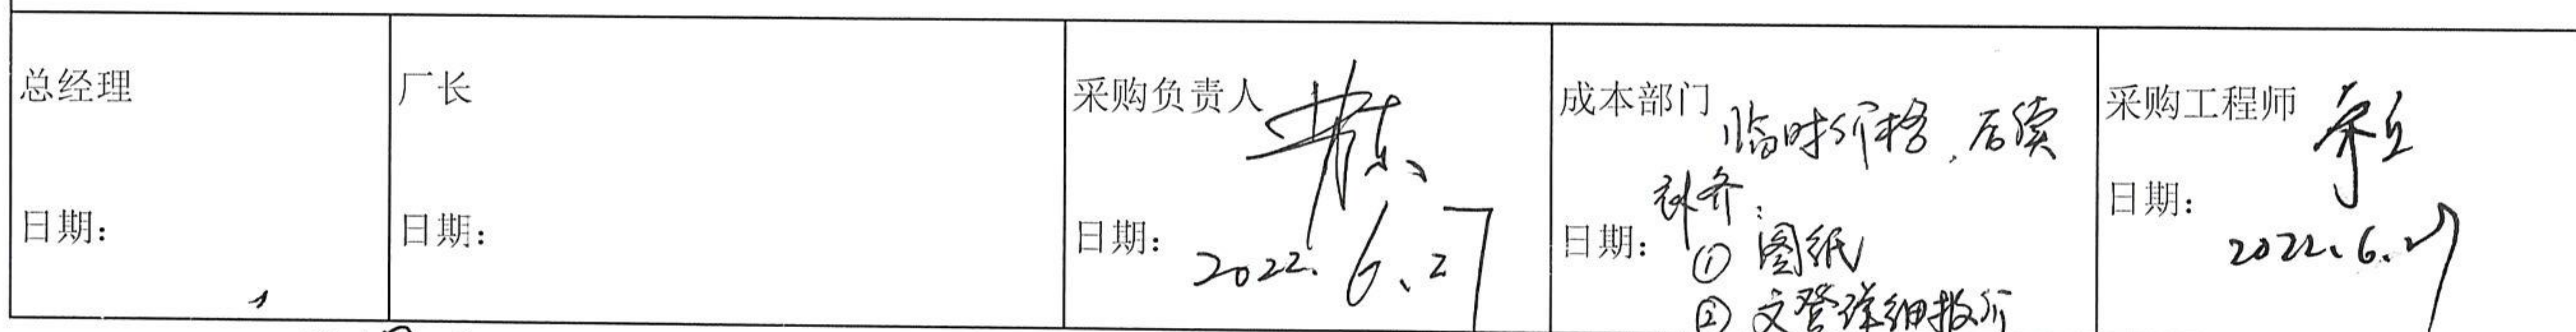 总经理
日期：
厂长
日期：
采购负责人
日期：
2022.6.27
成本部门
临时价格,后续
补齐：
日期：
① 图纸
② 文登详细报价
采购工程师
日期：
2022.6.27